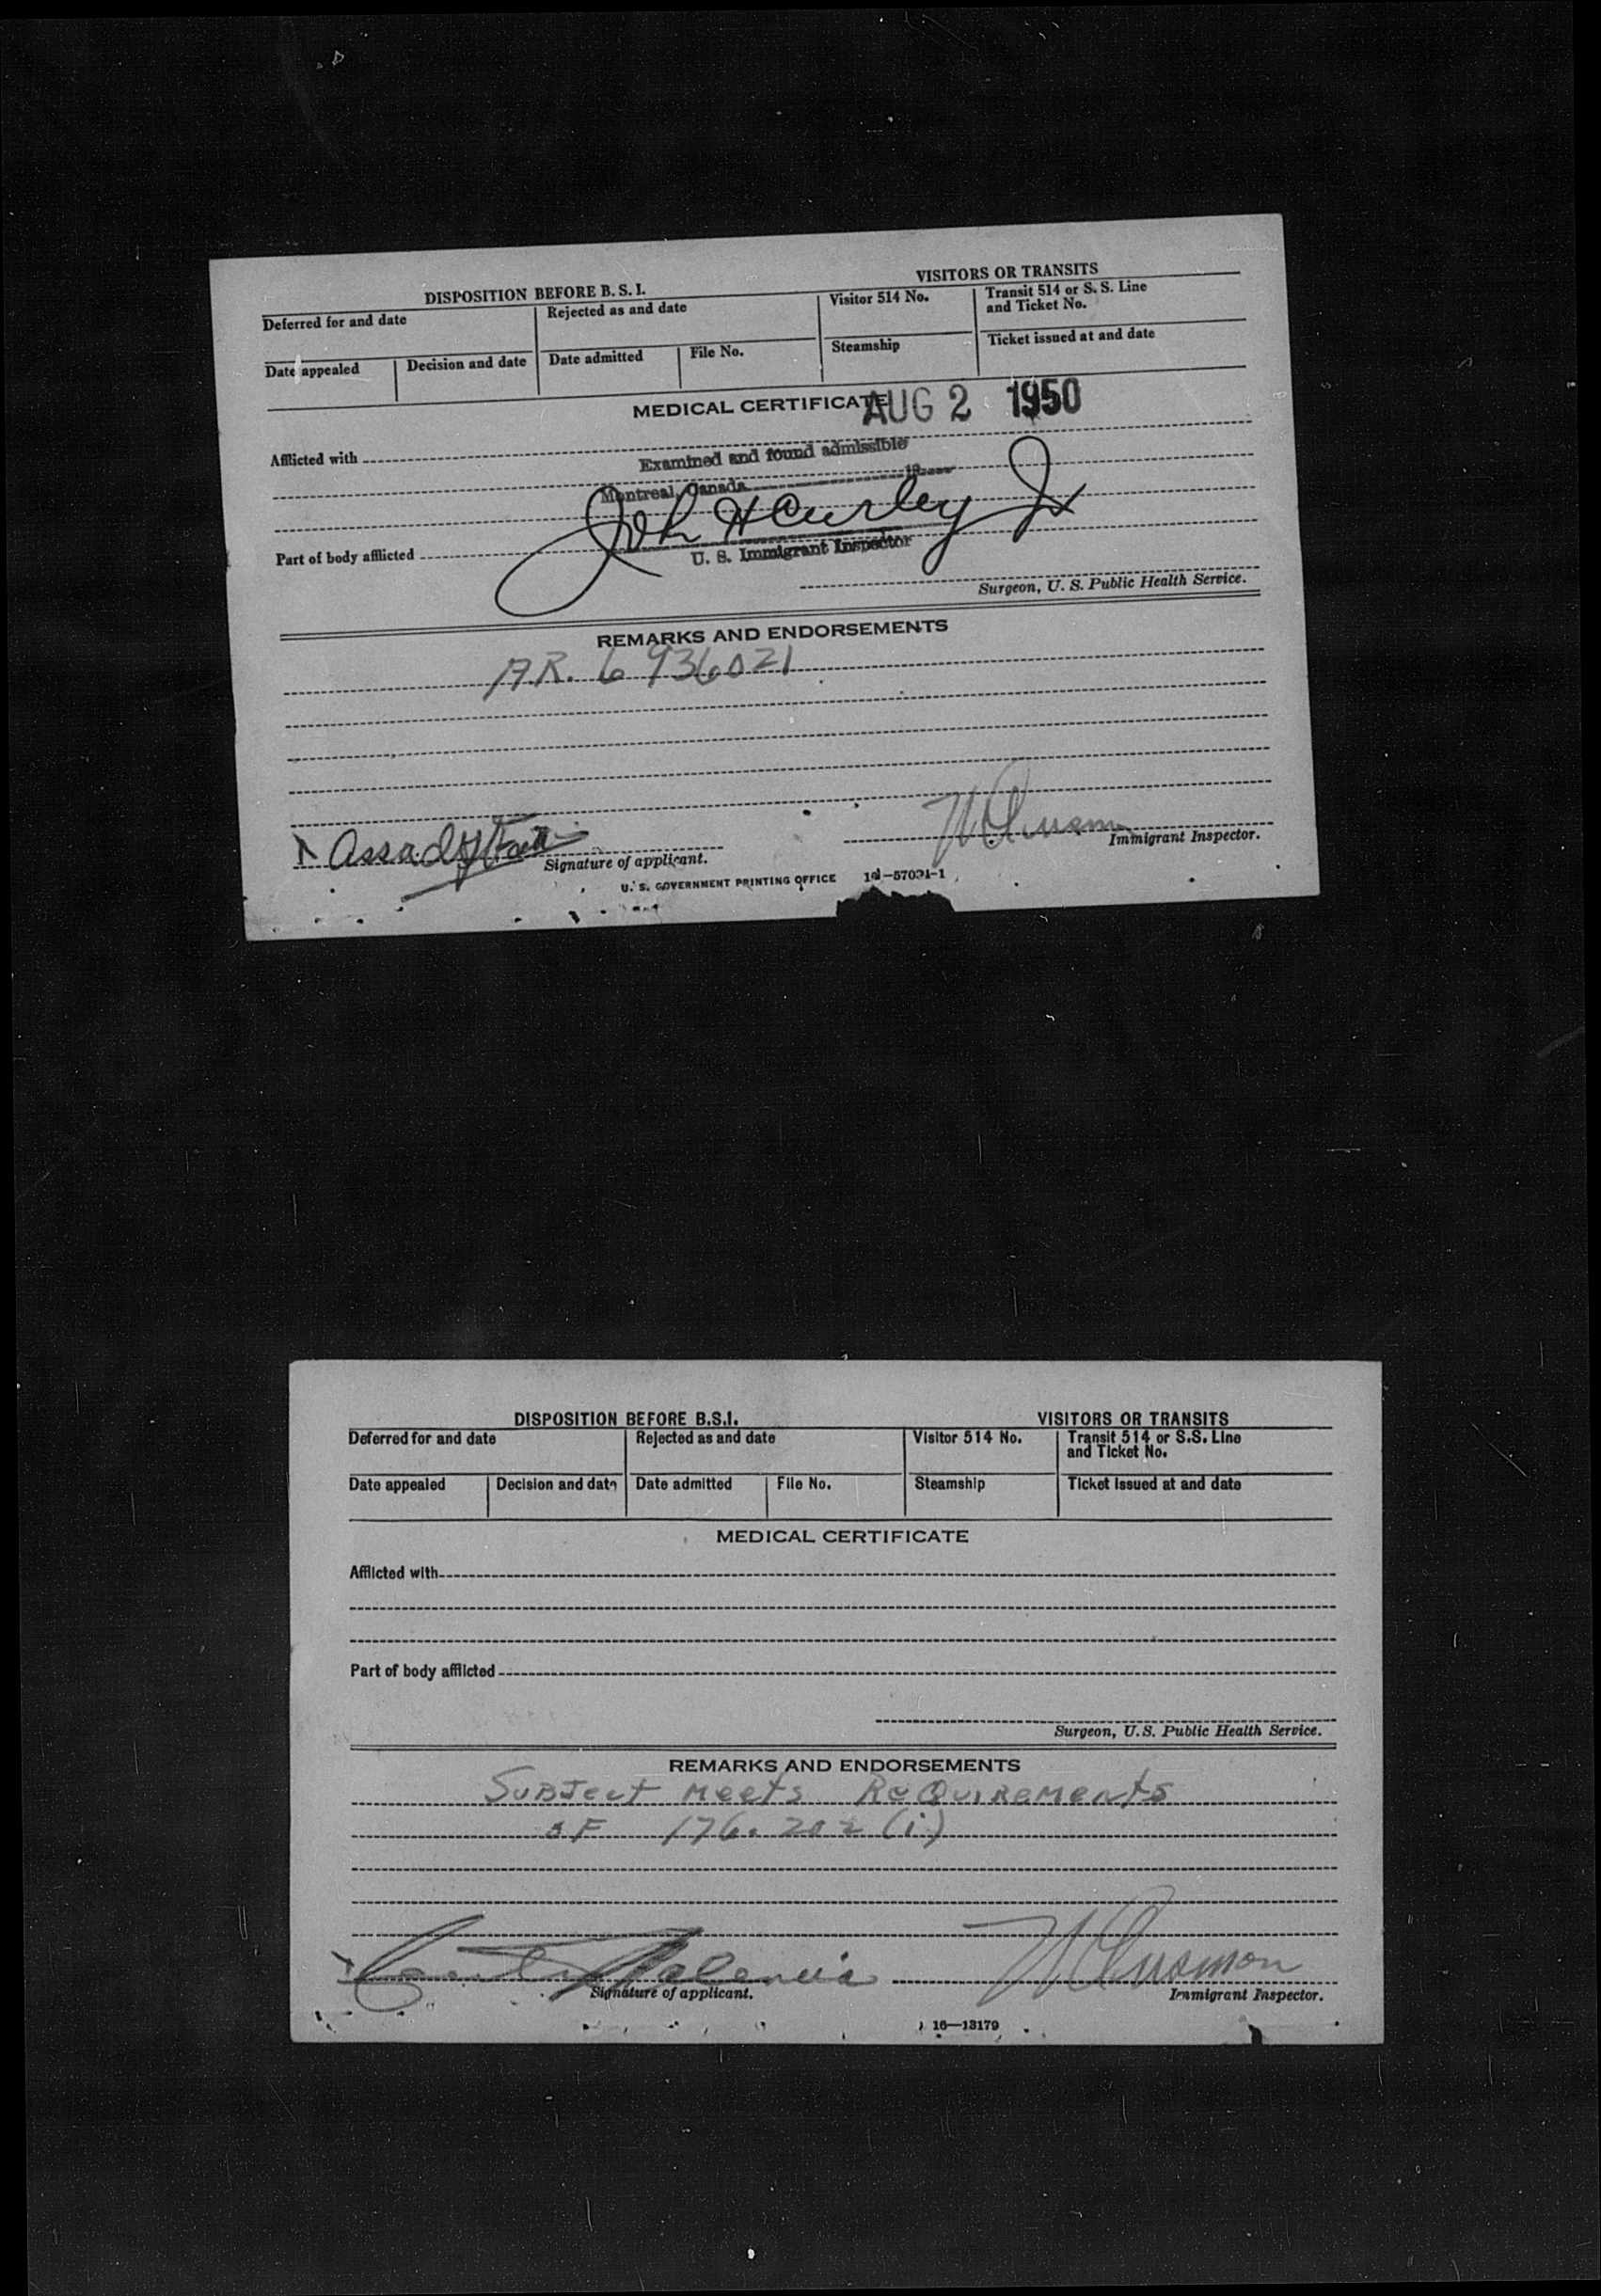 DISPOSITION BEFORE B. S. I.
VISITORS OR TRANSITS
Deferred for and date
Rejected as and date
Visitor 514 No.
Transit 514 or S. S. Line
and Ticket No.
Date appealed
Decision and date
Date admitted
File No.
Steamship
Ticket issued at and date
MEDICAL CERTIFICATE
AUG 2 1950
Afflicted with
Examined and found admissible
Montreal, Canada 19
John H Curley Jr
Part of body afflicted
U. S. Immigrant Inspector
Surgeon, U. S. Public Health Service.
REMARKS AND ENDORSEMENTS
A.R. 6 936021
Assad
Signature of applicant.
Immigrant Inspector.
U. S. GOVERNMENT PRINTING OFFICE
DISPOSITION BEFORE B.S.I.
VISITORS OR TRANSITS
Deferred for and date
Rejected as and date
Visitor 514 No.
Transit 514 or S.S. Line
and Ticket No.
Date appealed
Decision and date
Date admitted
File No.
Steamship
Ticket issued at and date
MEDICAL CERTIFICATE
Afflicted with
Part of body afflicted
Surgeon, U.S. Public Health Service.
REMARKS AND ENDORSEMENTS
SUBJect Meets ReQUIReMents
OF 176.202 (i)
Signature of applicant.
Immigrant Inspector.
16—13179